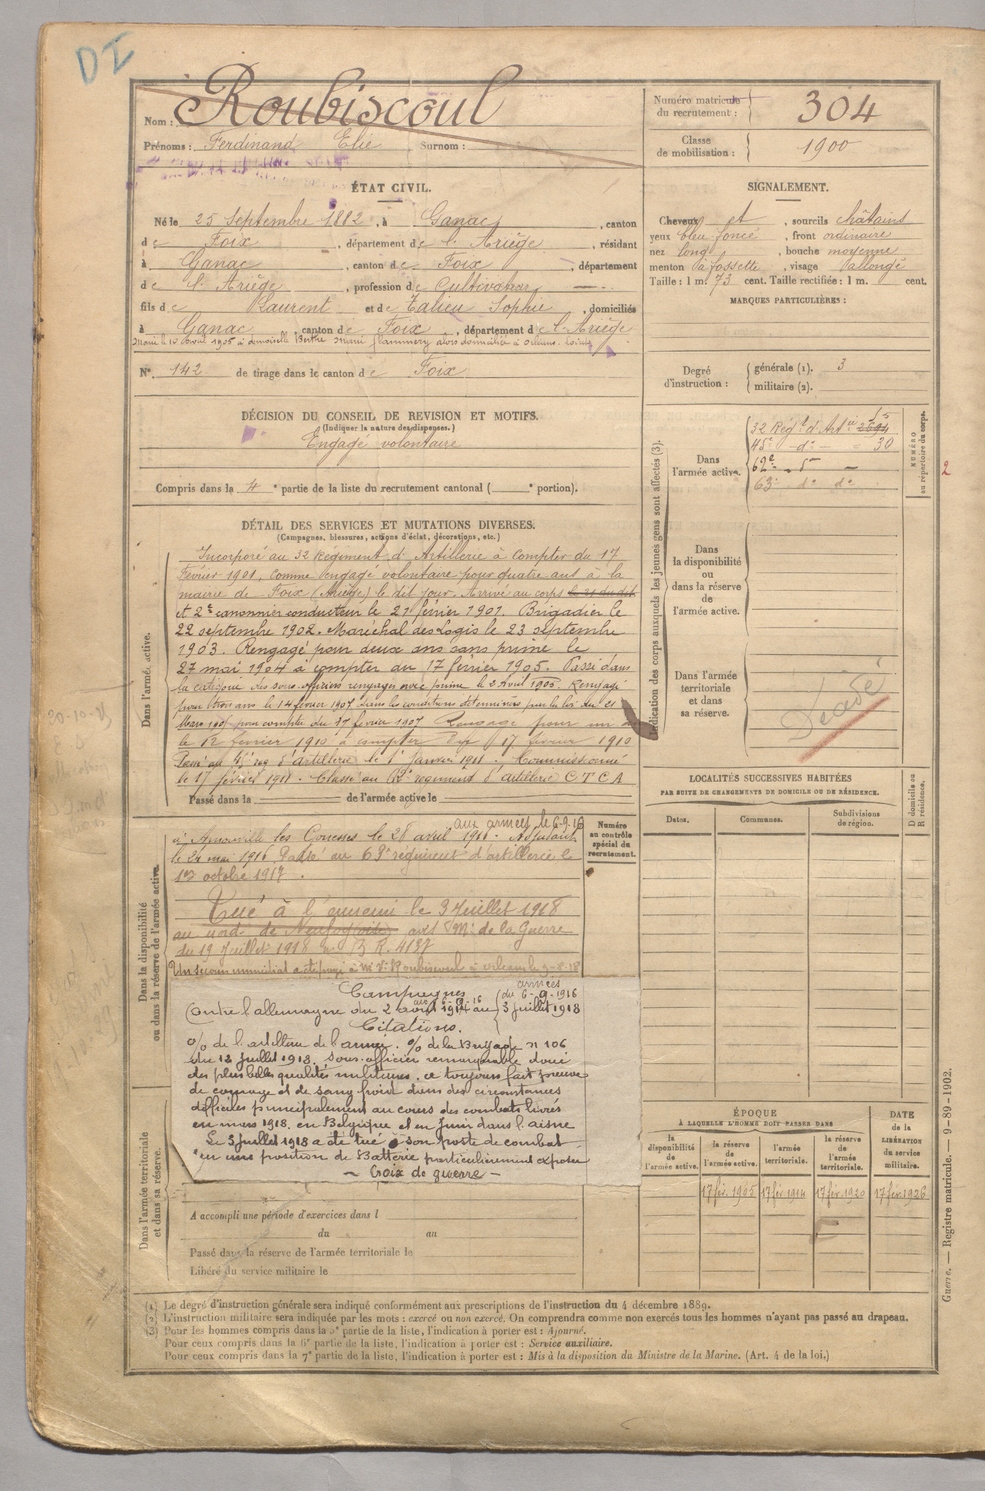 DI
Nom : Roubiscoul
Prénoms : Ferdinand Elie Surnom :
Numéro matricule du recrutement : 304
Classe de mobilisation : 1900
ÉTAT CIVIL.
Né le 25 Septembre 1882, à Ganac, canton
de Foix, département de l'Ariège, résidant
à Ganac, canton de Foix, département
de l'Ariège, profession de Cultivateur
fils de Laurent et de Talieu Sophie, domiciliés
à Ganac, canton de Foix, département de l'Ariège
Marié le 10 Avril 1905 à demoiselle Berthe Marie Flammery alors domiciliée à Orléans. Loiret
N° 142 de tirage dans le canton de Foix
SIGNALEMENT.
Cheveux et , sourcils châtains
yeux bleu foncé , front ordinaire
nez long , bouche moyenne
menton à fossette , visage allongé
Taille : 1 m. 73 cent. Taille rectifiée : 1 m. cent.
MARQUES PARTICULIÈRES :
Degré d'instruction : générale (1). 3
militaire (2).
DÉCISION DU CONSEIL DE REVISION ET MOTIFS.
(Indiquer la nature des dispenses.)
Engagé volontaire
Compris dans la 4e partie de la liste du recrutement cantonal ( e portion).
Indication des corps auxquels les jeunes gens sont affectés (3).
NUMÉRO au répertoire du corps.
Dans l'armée active.
32 Régt d'Artie
45e do 30
62e
63e do do
2
Dans la disponibilité ou dans la réserve de l'armée active.
Dans l'armée territoriale et dans sa réserve.
Décédé
DÉTAIL DES SERVICES ET MUTATIONS DIVERSES.
(Campagnes, blessures, actions d'éclat, décorations, etc.)
Dans l'armée active.
Incorporé au 32 Régiment d'Artillerie à compter du 17
Février 1901, comme engagé volontaire pour quatre ans à la
mairie de Foix (Ariège) le dit jour. Arrivé au corps
et 2e canonnier conducteur le 21 février 1901. Brigadier le
22 septembre 1902. Maréchal des Logis le 23 septembre
1903. Rengagé pour deux ans sans prime le
27 mai 1904 à compter du 17 février 1905. Passé dans
la catégorie des sous-officiers rengagés avec prime le 2 Avril 1905. Rengagé
pour trois ans le 14 février 1907 dans les conditions déterminées par la loi du 21
Mars 1905 pour compter du 17 février 1907. Rengagé pour un an
le 12 février 1910 à compter du 17 février 1910
Passé au 45e reg d'artillerie le 1er janvier 1911. Commissionné
le 17 février 1911. Classé au 62e régiment d'artillerie C T C A
Passé dans la de l'armée active le
LOCALITÉS SUCCESSIVES HABITÉES
PAR SUITE DE CHANGEMENTS DE DOMICILE OU DE RÉSIDENCE.
Dates. Communes. Subdivisions de région. D domicile ou R résidence.
Dans la disponibilité ou dans la réserve de l'armée active.
Numéro au contrôle spécial du recrutement.
aux armées le 6-9-16
à Arnouville les Gonesses le 28 avril 1916. Adjudant
le 24 mai 1916 Passé au 63e régiment d'artillerie le
1er octobre 1917.
Tué à l'ennemi le 3 Juillet 1918
au nord de avis Mre de la Guerre
du 19 Juillet 1918 R. 4137
Un secours immédiat a été payé à Mme Vve Roubiscoul à Orléans le 9-8-18
Campagnes
Contre l'allemagne du 2 août 1914 au
armées
du 6-9-1916
3 juillet 1918
Citations.
% de l'artillerie de l'armée. % de la Brigade n 106
du 12 Juillet 1918. Sous-officier remarquable doué
des plus belles qualités militaires. a toujours fait preuve
de courage et de sang froid dans des circonstances
difficiles principalement au cours des combats livrés
en mars 1918. en Belgique et en Juin dans l'aisne
Le 3 juillet 1918 a été tué à son poste de combat
en une position de Batterie particulièrement exposée
- Croix de guerre -
Dans l'armée territoriale et dans sa réserve.
A accompli une période d'exercices dans l
du au
Passé dans la réserve de l'armée territoriale le
Libéré du service militaire le
ÉPOQUE
À LAQUELLE L'HOMME DOIT PASSER DANS
DATE de la LIBÉRATION du service militaire.
la disponibilité de l'armée active.
la réserve de l'armée active.
l'armée territoriale.
la réserve de l'armée territoriale.
17 fév. 1905 17 fév. 1914 17 fév. 1920 17 fév. 1926
(1) Le degré d'instruction générale sera indiqué conformément aux prescriptions de l'instruction du 4 décembre 1889.
(2) L'instruction militaire sera indiquée par les mots : exercé ou non exercé. On comprendra comme non exercés tous les hommes n'ayant pas passé au drapeau.
(3) Pour les hommes compris dans la 5e partie de la liste, l'indication à porter est : Ajourné.
Pour ceux compris dans la 6e partie de la liste, l'indication à porter est : Service auxiliaire.
Pour ceux compris dans la 7e partie de la liste, l'indication à porter est : Mis à la disposition du Ministre de la Marine. (Art. 4 de la loi.)
Guerre. — Registre matricule. — 9-89-1902.